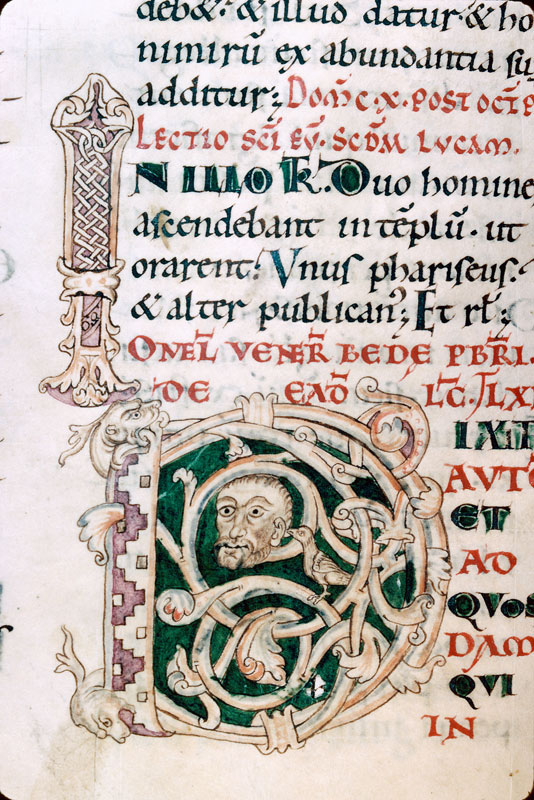 deb&̄. & illud datur. & ho
nimirū ex abundantia su
additur; Dom̄c. x. post oct̄
Lectio sc̄i eu̅. sc̄dm lvcam.
IN ILLO T̄R. Duo homine
ascendebant in tēplū. ut
orarent; Vnus phariseus.
& alter publican᷒; Et rł;
OMEL̄ VENER̄ BEDE PB̄RI.
DE EAD̄ L̄C. 
DIXIT
AVTE
ET
AD
QVOS
DAM
QVI
IN